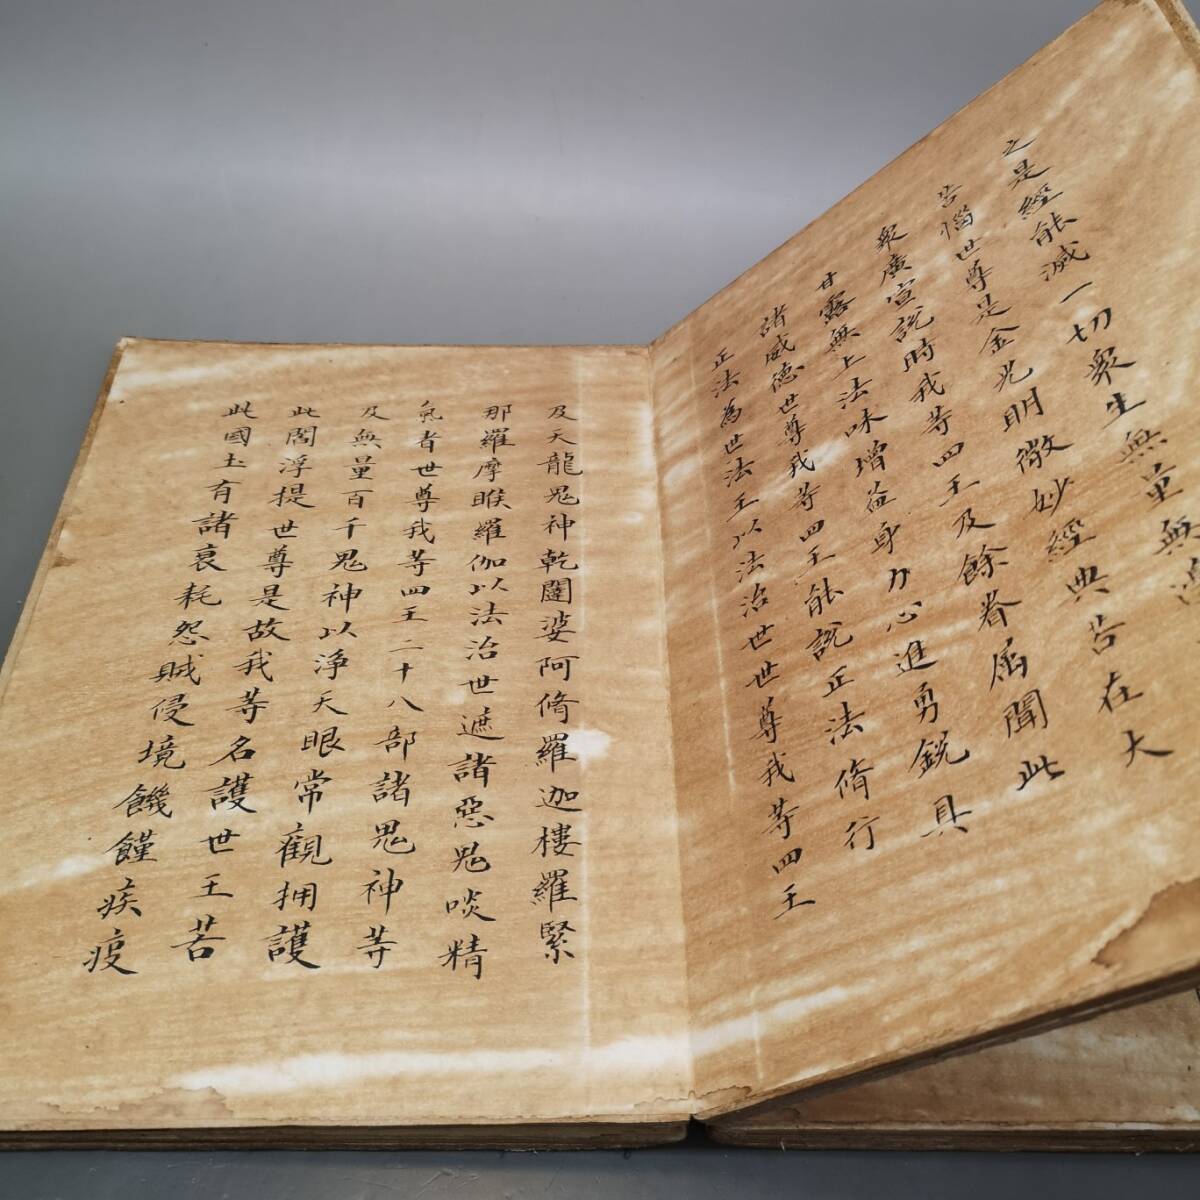 之是經能滅一切衆生無量無
苦惱世尊是金光明微妙經典若在大
衆廣宣說時我等四王及餘眷屬聞此
甘露無上法味增益身力心進勇銳具
諸威德世尊我等四王能說正法脩行
正法為世法王以法治世世尊我等四王
及天龍鬼神乾闥婆阿脩羅迦樓羅緊
那羅摩睺羅伽以法治世遮諸惡鬼啖精
氣者世尊我等四王二十八部諸鬼神等
及無量百千鬼神以淨天眼常觀擁護
此閻浮提世尊是故我等名護世王若
此國土有諸衰耗怨賊侵境饑饉疾疫